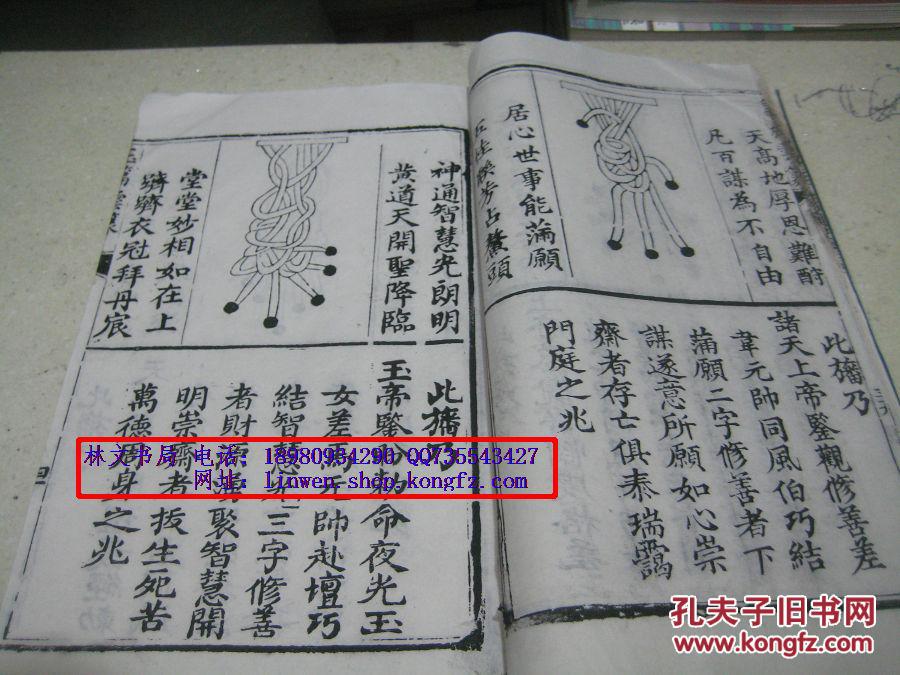 天高地厚恩難酧
凡百謀為不自由
居心世事能滿願
占鰲頭
此旛乃
諸天上帝鑒觀修善差
韋元帥同風伯巧結
滿願二字修善者下
謀遂意所願如心崇
齋者存亡俱泰瑞靄
門庭之兆
神通智慧光朗明
黃道天開聖降臨
堂堂妙相如在上
衣冠拜丹宸
此旛乃
玉帝鑒勅命夜光玉
女差馬元帥赴壇巧
結智慧光三字修善
者財源聚智慧開
明崇齋者拔生死苦
萬德身之兆
林文书局 电话：18980934290 QQ735543427
网址：linwen.shop.kongfz.com
孔夫子旧书网
www.kongfz.com